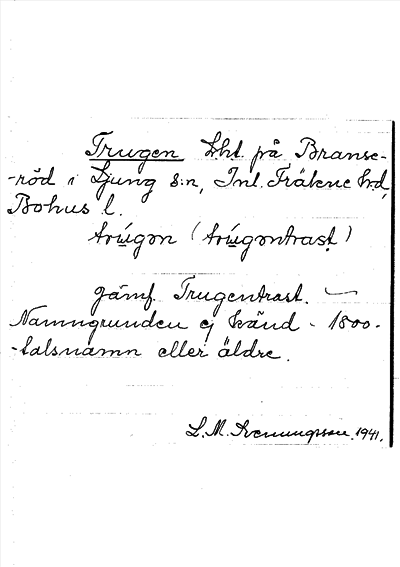 Trugen lht. på Branse-
-röd i Ljung s:n, Inl. Fräkne hd,
Bohus l.
trúgən (trúgəntrast)
jämf. Trugentrast.
Namngrunden ej känd - 1800-
-talsnamn eller äldre.
L. M. Svenungsson. 1941.